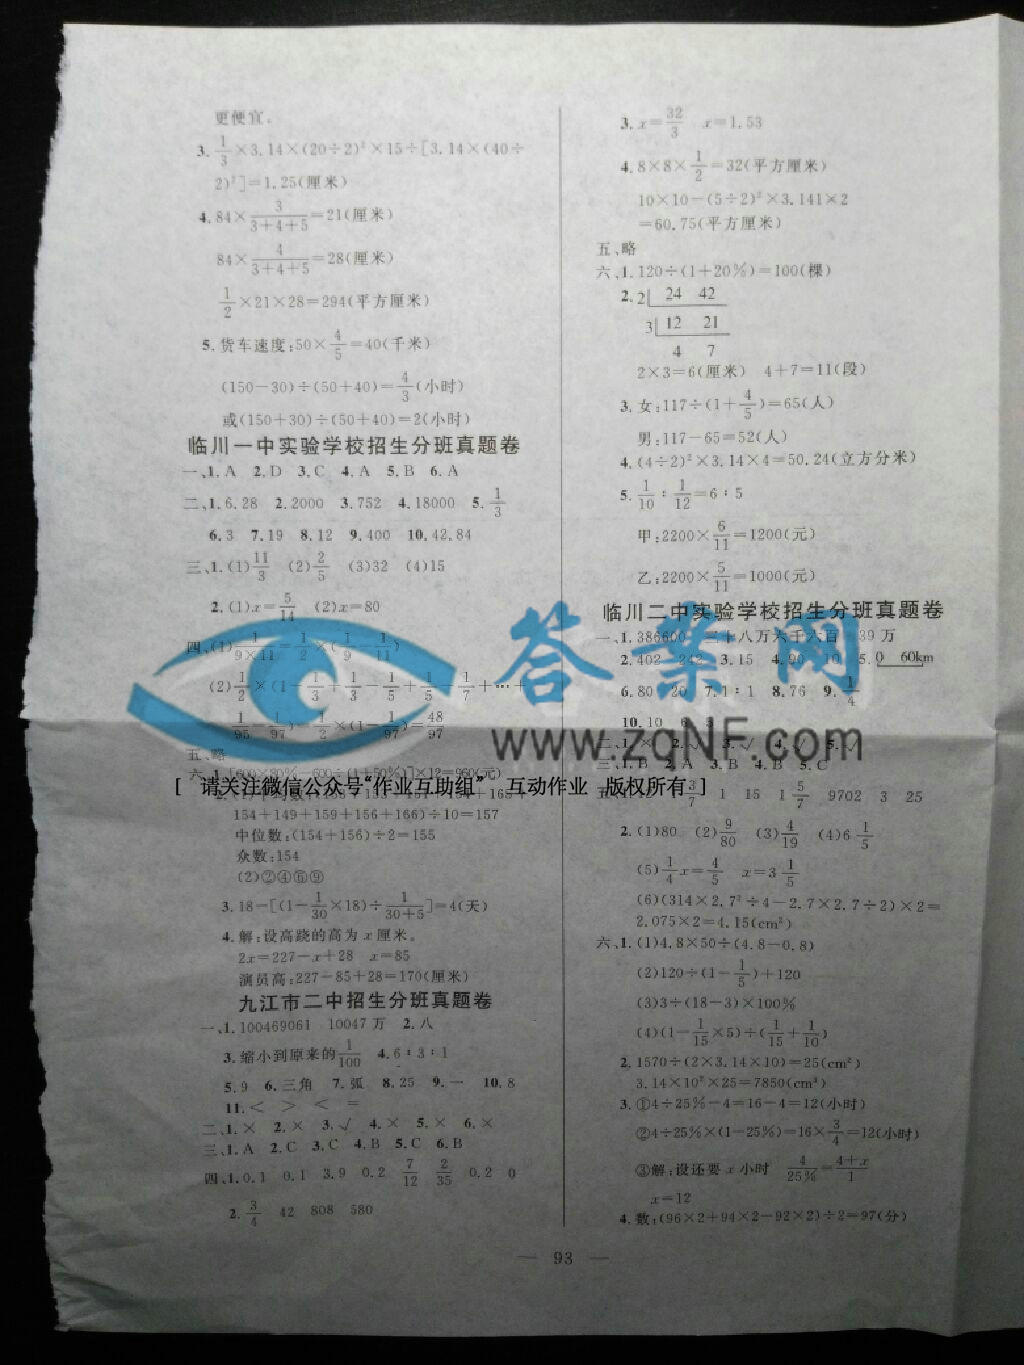 更便宜。
3. 1/3×3.14×(20÷2)²×15÷[3.14×(40÷
2)²]=1.25(厘米)
4. 84×3/(3+4+5)=21(厘米)
84×4/(3+4+5)=28(厘米)
1/2×21×28=294(平方厘米)
5. 货车速度:50×4/5=40(千米)
(150-30)÷(50+40)=4/3(小时)
或(150+30)÷(50+40)=2(小时)
临川一中实验学校招生分班真题卷
一、1. A 2. D 3. C 4. A 5. B 6. A
二、1. 6.28 2. 2000 3. 752 4. 18000 5. 1/3
6. 3 7. 19 8. 12 9. 400 10. 42.84
三、1. (1)11/3 (2)2/5 (3)32 (4)15
2. (1)x=5/14 (2)x=80
四、(1)1/(9×11)=1/2×(1/9-1/11)
(2)1/2×(1-1/3+1/3-1/5+1/5-1/7+…+
1/95-1/97)=1/2×(1-1/97)=48/97
五、略
六、1. [600×80%-600÷(1+50%)]×12=960(元)
154+149+159+156+166)÷10=157
中位数:(154+156)÷2=155
众数:154
(2)②④⑥⑨
3. 18-[(1-1/30×18)÷1/(30+5)]=4(天)
4. 解:设高跷的高为x厘米。
2x=227-x+28 x=85
演员高:227-85+28=170(厘米)
九江市二中招生分班真题卷
一、1. 100469061 10047万 2. 八
3. 缩小到原来的1/100 4. 6∶3∶1
5. 9 6. 三角 7. 弧 8. 25 9. 一 10. 8
11. < > < =
二、1. × 2. × 3. √ 4. × 5. × 6. ×
三、1. A 2. C 3. C 4. B 5. C 6. B
四、1. 0.1 0.1 3.9 0.2 7/12 2/35 0.2 0
2. 3/4 42 808 580
3. x=32/3 x=1.53
4. 8×8×1/2=32(平方厘米)
10×10-(5÷2)²×3.141×2
=60.75(平方厘米)
五、略
六、1. 120÷(1+20%)=100(棵)
2. 2 24 42
3 12 21
4 7
2×3=6(厘米) 4+7=11(段)
3. 女:117÷(1+4/5)=65(人)
男:117-65=52(人)
4. (4÷2)²×3.14×4=50.24(立方分米)
5. 1/10∶1/12=6∶5
甲:2200×6/11=1200(元)
乙:2200×5/11=1000(元)
临川二中实验学校招生分班真题卷
一、1. 386600 三十八万六千六百 39万
2. 402 242 3. 15 4. 90 10 5. 0 60km
6. 80 20 7. 1∶1 8. 76 9. 1/4
10. 10 6
二、1. × 2. √ 3. √ 4. √ 5. √
三、1. B 2. A 3. B 4. B 5. C
3/7 1 15 1 5/7 9702 3 25
2. (1)80 (2)9/80 (3)4/19 (4)6 1/5
(5)1/4x=4/5 x=3 1/5
(6)(314×2.7²÷4-2.7×2.7÷2)×2=
2.075×2=4.15(cm²)
六、1. (1)4.8×50÷(4.8-0.8)
(2)120÷(1-1/5)+120
(3)3÷(18-3)×100%
(4)(1-1/15×5)÷(1/15+1/10)
2. 1570÷(2×3.14×10)=25(cm²)
3.14×10²×25=7850(cm³)
3. ①4÷25%-4=16-4=12(小时)
②4÷25%×(1-25%)=16×3/4=12(小时)
③解:设还要x小时 4/25%=(4+x)/1
x=12
4. 数:(96×2+94×2-92×2)÷2=97(分)
— 93 —
答案网
www.zqNF.com
[ 请关注微信公众号“作业互助组” 互动作业 版权所有 ]